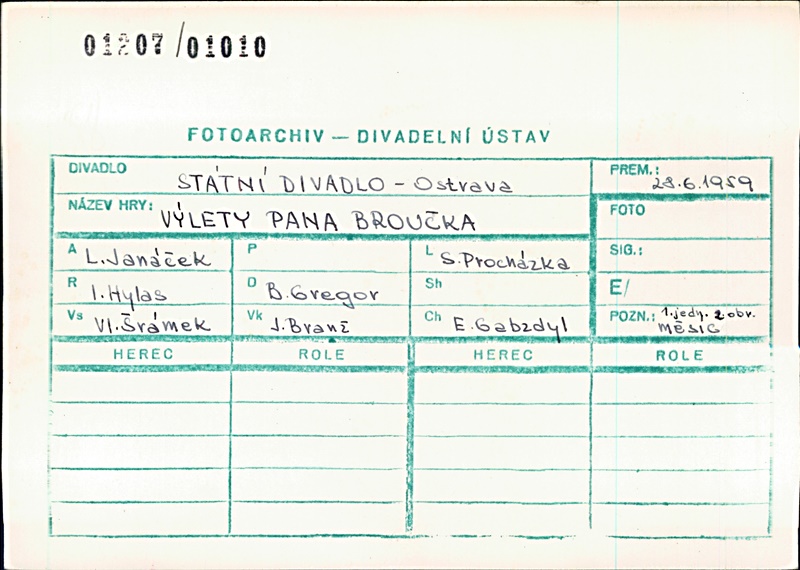 01207/01010
FOTOARCHIV — DIVADELNÍ ÚSTAV
DIVADLO STÁTNÍ DIVADLO - Ostrava PREM.: 28.6.1959
NÁZEV HRY: VÝLETY PANA BROUČKA FOTO
A L. Janáček P L S. Procházka SIG.:
R I. Hylas D B. Gregor Sh E/
Vs Vl. Šrámek Vk J. Braně Ch E. Gabzdyl POZN.: 1. jedn. 2 obr.
MĚSÍC
HEREC ROLE HEREC ROLE